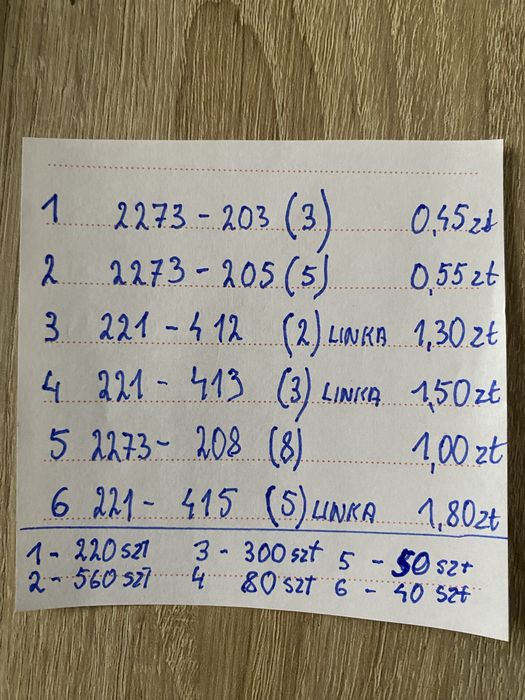 1 2273 - 203 (3) 0,45 zł
2 2273 - 205 (5) 0,55 zł
3 221 - 412 (2) LINKA 1,30 zł
4 221 - 413 (3) LINKA 1,50 zł
5 2273 - 208 (8) 1,00 zł
6 221 - 415 (5) LINKA 1,80 zł
1 - 220 szt 3 - 300 szt 5 - 50 szt
2 - 560 szt 4 80 szt 6 - 40 szt